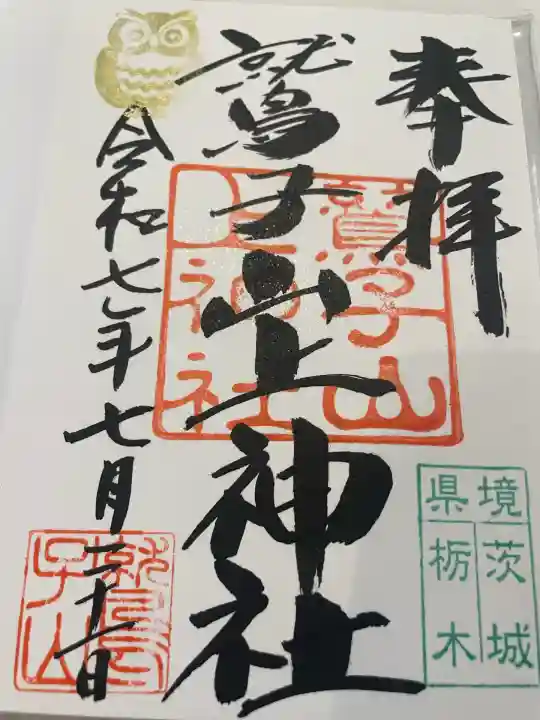 奉拝
鷲子山上神社
令和七年七月二十一日
鷲子山
上神社
鷲子山
境 茨城
県 栃木